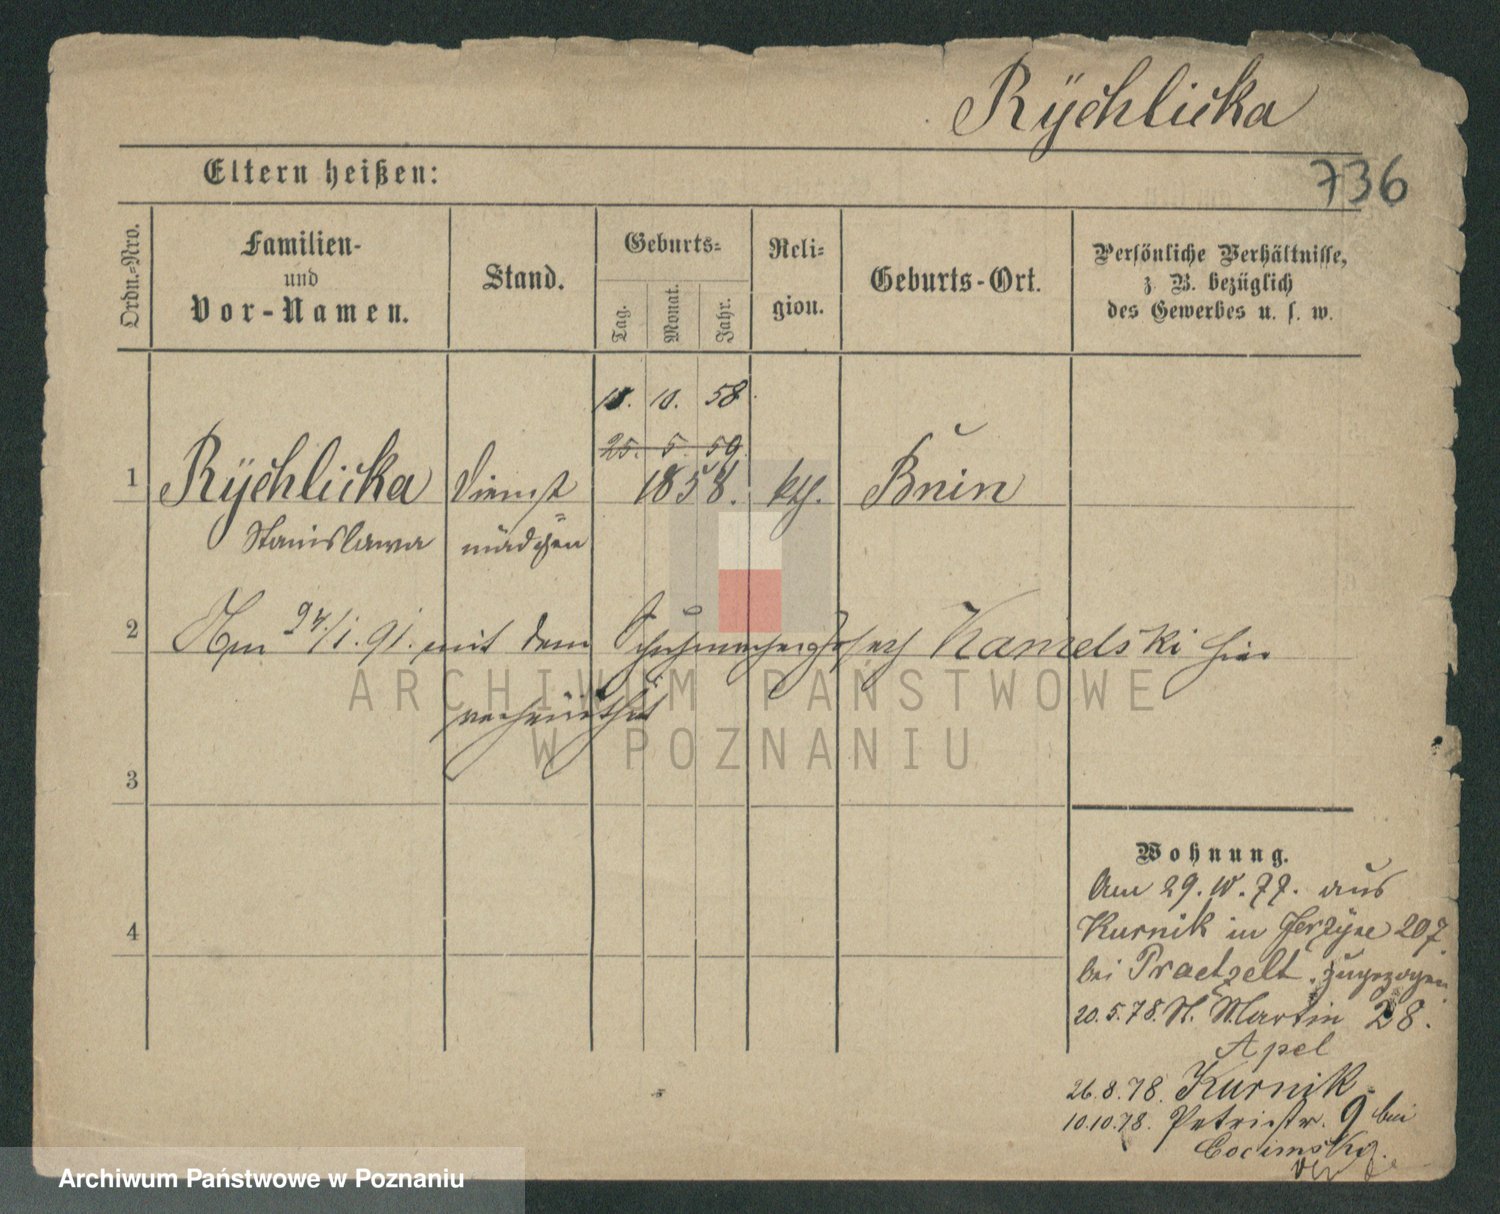 Rÿchlicka
736
Eltern heißen:
Ordn.-Nro.
Familien-
und
Vor-Namen.
Stand.
Geburts-
Tag.
Monat.
Jahr.
Reli-
gion.
Geburts-Ort.
Persönliche Verhältnisse,
z. B. bezüglich
des Gewerbes u. s. w.
10. 58.
25. 5. 59.
1 Rÿchlicka Dienst 1858. kth. Bnin
Stanislawa mädchen
2 Am 24/1. 91. mit dem Schuhmacher Josef Kamelski hier
verheirathet
3
4
Wohnung.
Am 29. 10. 77. aus
Kurnik in Jerzÿce 207.
bei Praetzelt. zugezogen
20. 5. 78. St. Martin 28.
Apel
26. 8. 78. Kurnik
10. 10. 78. Petristr. 9 bei
ARCHIWUM PAŃSTWOWE
W POZNANIU
Archiwum Państwowe w Poznaniu